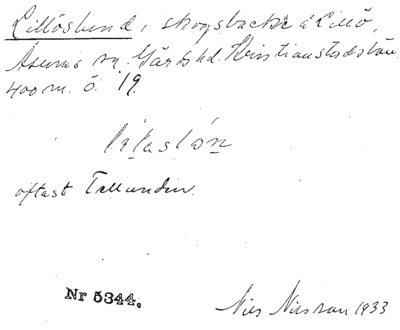 Lillöslund, skogsbacke å Lillö,
Åsums sn. Gärds hd. Kristianstads län.
400 m. ö. 19.
oftast Tallunden.
Nr 5344.
Nils Nilsson 1933